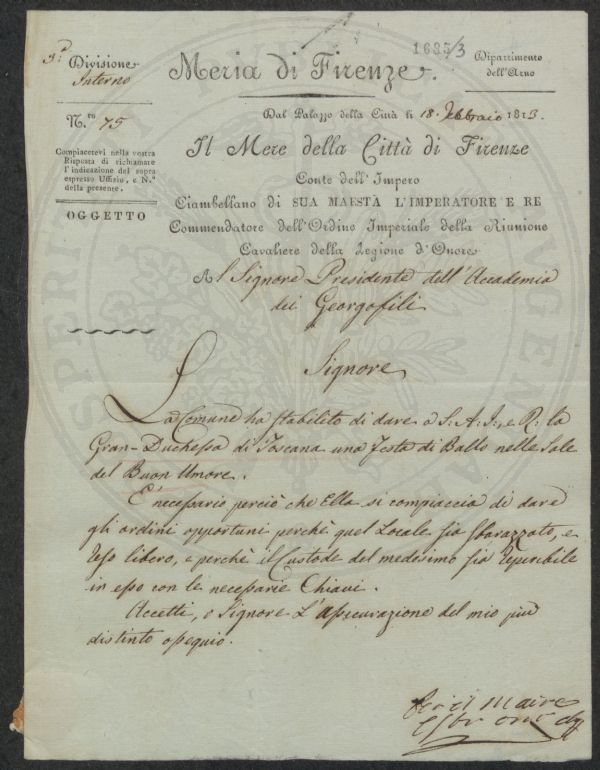 1635/3
3.a Divisione
Interno
Meria di Firenze.
Dipartimento
dell'Arno
N.ro 75
Dal Palazzo della Città li 18. Febbraio 1813.
Compiacetevi nella vostra
Risposta di richiamare
l'indicazione del sopra
espresso Uffizio, e N.o
della presente.
OGGETTO
Il Mere della Città di Firenze
Conte dell'Impero
Ciambellano di SUA MAESTÀ L'IMPERATORE E RE
Commendatore dell'Ordine Imperiale della Riunione
Cavaliere della Legione d'Onore
Al Signore Presidente dell'Accademia
dei Georgofili
Signore
La Comune ha stabilito di dare a S: A: I:, e R: la
Gran-Duchessa di Toscana una Festa di Ballo nelle Sale
del Buon Umore.
E' necessario perciò che Ella si compiaccia di dare
gli ordini opportuni perchè quel Locale sia sbarazzato, e
reso libero, e perchè il Custode del medesimo sia reperibile
in esso con le necessarie Chiavi.
Accetti, o Signore L'assicurazione del mio più
distinto ossequio.
Per il Maire